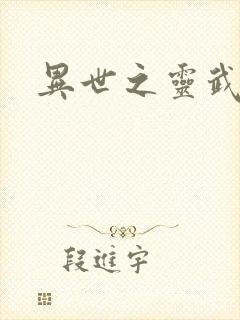 異世之靈武
段進宇